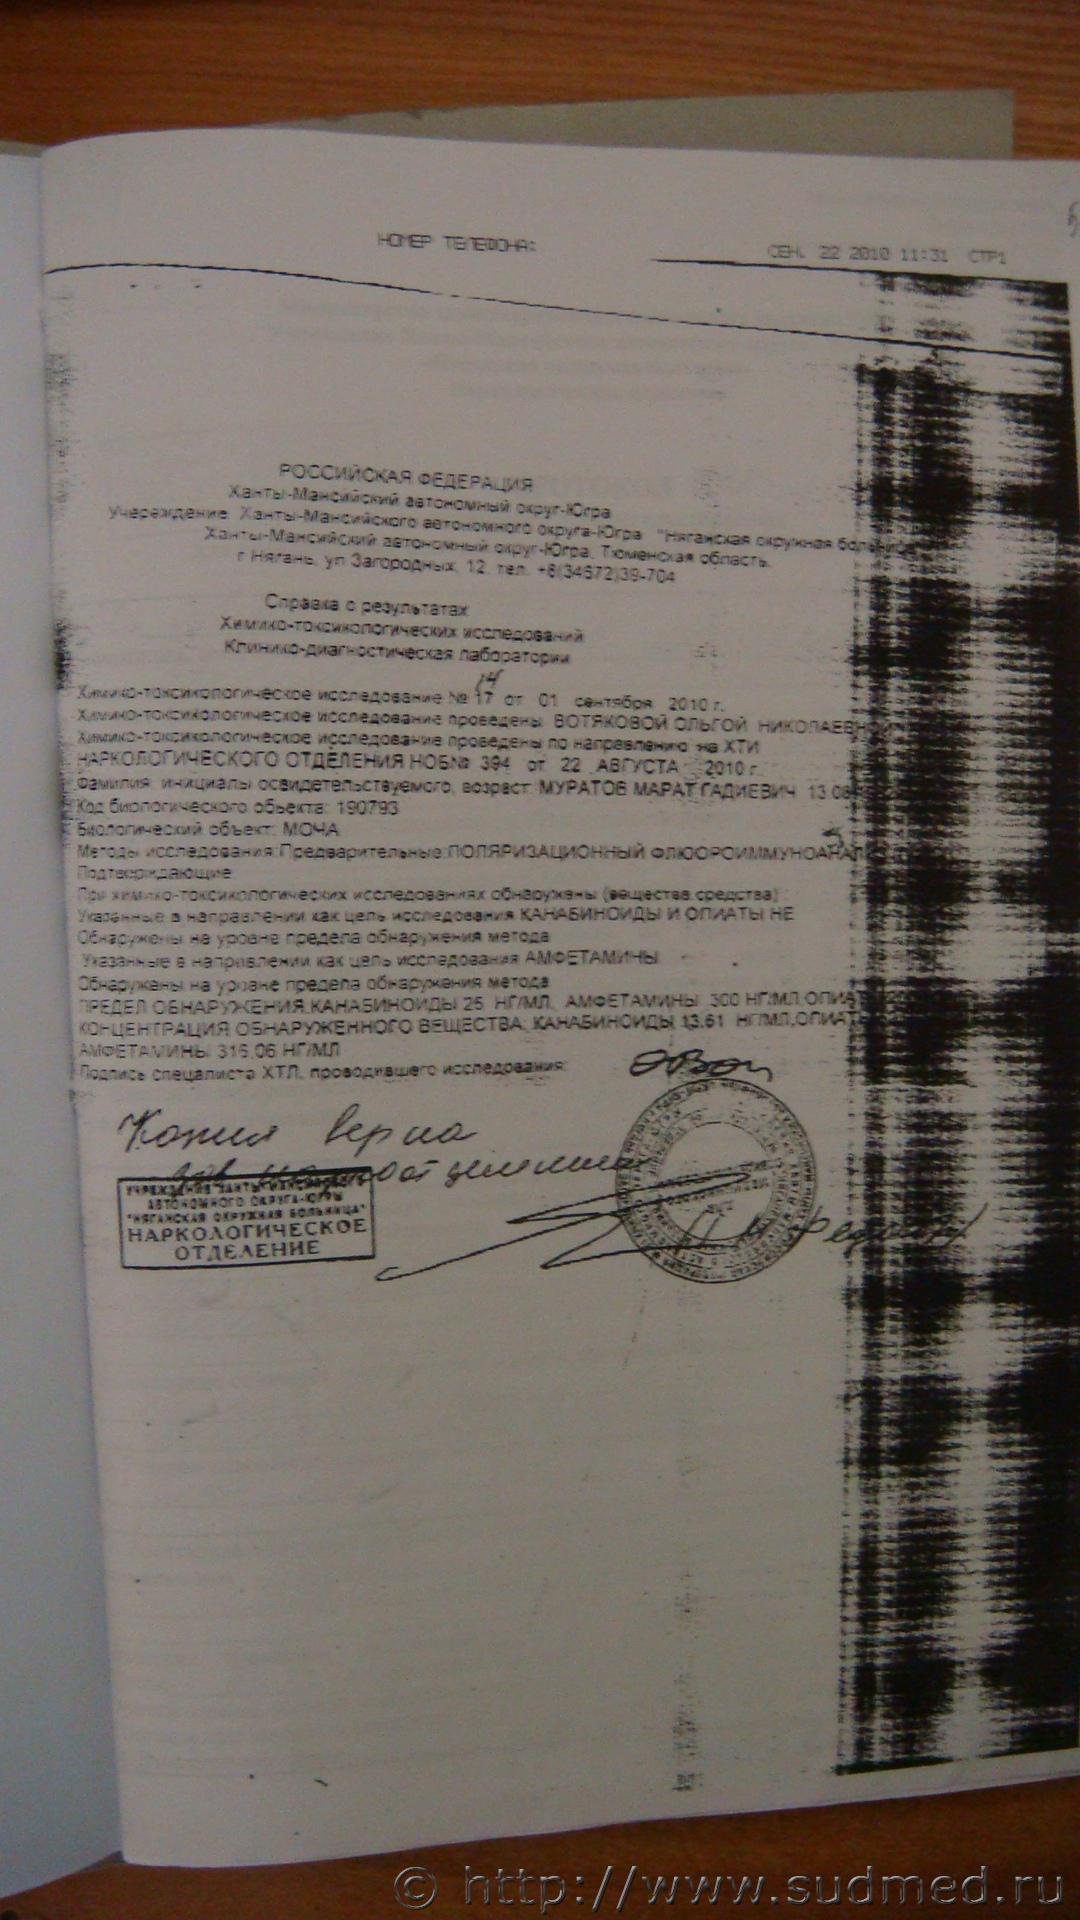 НОМЕР ТЕЛЕФОНА:
СЕН. 22 2010 11:31 СТР1
РОССИЙСКАЯ ФЕДЕРАЦИЯ
Ханты-Мансийский автономный округ-Югра
Учереждение Ханты-Мансийского автономного округа-Югра "Няганская окружная
Ханты-Мансийский автономный округ-Югра, Тюменская область,
г Нягань, ул Загородных, 12, тел. +8(34672)39-704
Справка о результатах
Химико-токсикологических исследований
Клинико-диагностическая лаборатории
14
Химико-токсикологическое исследование № 17 от 01 сентября 2010 г.
Химико-токсикологическое исследование проведены ВОТЯКОВОЙ ОЛЬГОЙ НИКОЛАЕВНОЙ
Химико-токсикологическое исследование проведены по направлению на ХТИ
НАРКОЛОГИЧЕСКОГО ОТДЕЛЕНИЯ НОБ№ 394 от 22 АВГУСТА 2010 г.
Фамилия инициалы освидетельствуемого, возраст: МУРАТОВ МАРАТ ГАДИЕВИЧ 13
Код биологического объекта: 190793
Биологический объект: МОЧА
Методы исследования:Предварительные:ПОЛЯРИЗАЦИОННЫЙ ФЛЮОРОИММУНОАНАЛ
Подтверждающие
При химико-токсикологических исследованиях обнаружены (вещества средства) :
Указанные в направлении как цель исследования КАНАБИНОИДЫ И ОПИАТЫ НЕ
Обнаружены на уровне предела обнаружения метода
Указанные в направлении как цель исследования АМФЕТАМИНЫ
Обнаружены на уровне предела обнаружения метода
ПРЕДЕЛ ОБНАРУЖЕНИЯ,КАНАБИНОИДЫ 25 НГ/МЛ, АМФЕТАМИНЫ 300 НГ/МЛ,ОПИАТ
КОНЦЕНТРАЦИЯ ОБНАРУЖЕННОГО ВЕЩЕСТВА: КАНАБИНОИДЫ 13.61 НГ/МЛ,ОПИАТ
АМФЕТАМИНЫ 316,06 НГ/МЛ
Подпись специалиста ХТЛ, проводившего исследования:
Копия верна
УЧРЕЖДЕНИЕ ХАНТЫ-МАНСИЙСКОГО
АВТОНОМНОГО ОКРУГА-ЮГРЫ
"НЯГАНСКАЯ ОКРУЖНАЯ БОЛЬНИЦА"
НАРКОЛОГИЧЕСКОЕ
ОТДЕЛЕНИЕ
© http://www.sudmed.ru